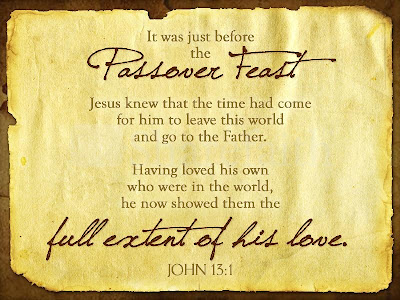 It was just before
the
Passover Feast
Jesus knew that the time had come
for him to leave this world
and go to the Father.
Having loved his own
who were in the world,
he now showed them the
full extent of his love.
JOHN 13:1